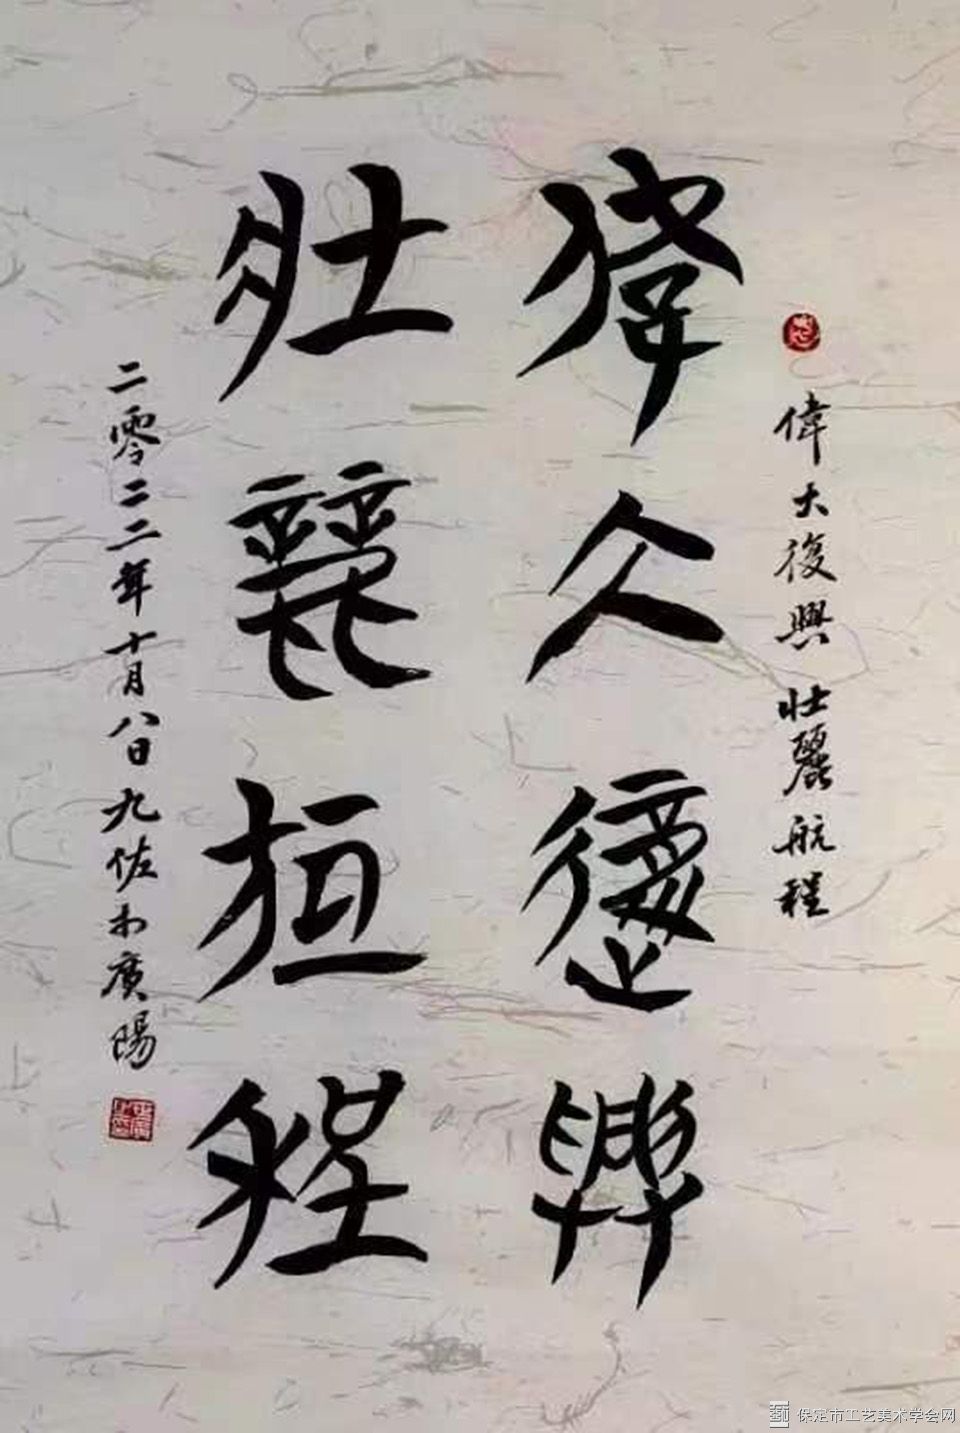 偉大復興 壯麗航程
偉大復興
壯麗航程
二零二二年十月八日九佐廣陽
保定市工艺美术学会网